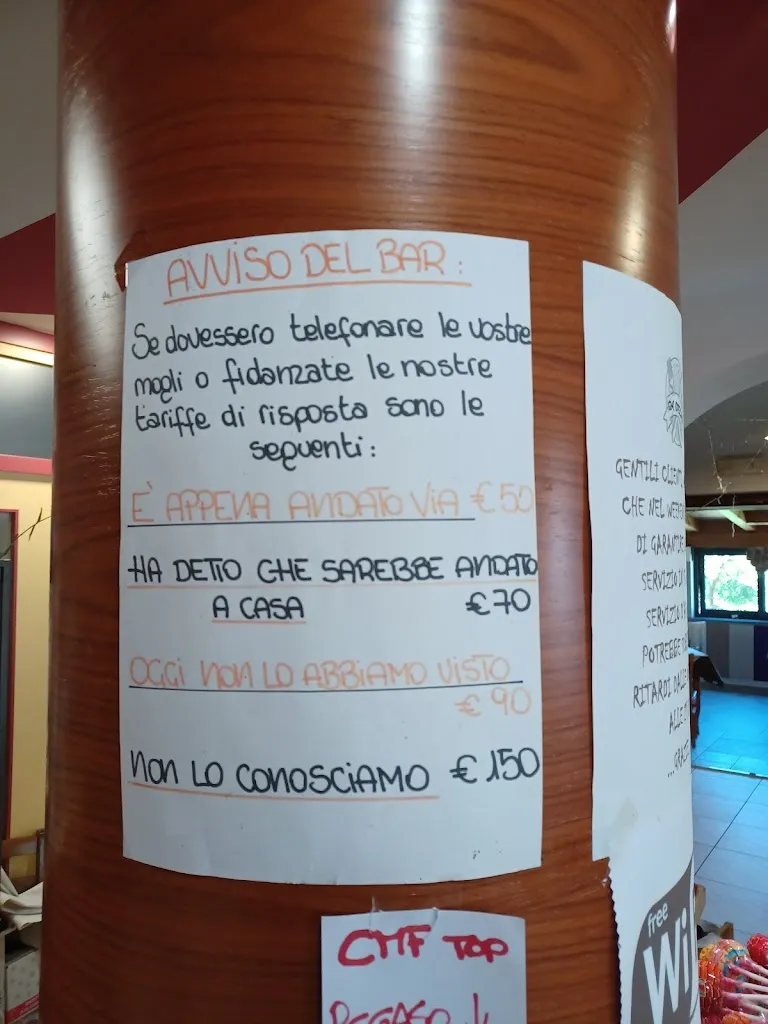 AVVISO DEL BAR:
Se dovessero telefonare le vostre
mogli o fidanzate le nostre
tariffe di risposta sono le
seguenti:
E' APPENA ANDATO VIA €50
HA DETTO CHE SAREBBE ANDATO
A CASA €70
OGGI NON LO ABBIAMO VISTO
€90
NON LO CONOSCIAMO €150
GENTILI CLIENT
CHE NEL WEEK
DI GARANTIRE
SERVIZIO
SERVIZIO
POTREBBE
RITARDI DALLE
ALLE
...GRAZ
free
Wi
CMF TOP